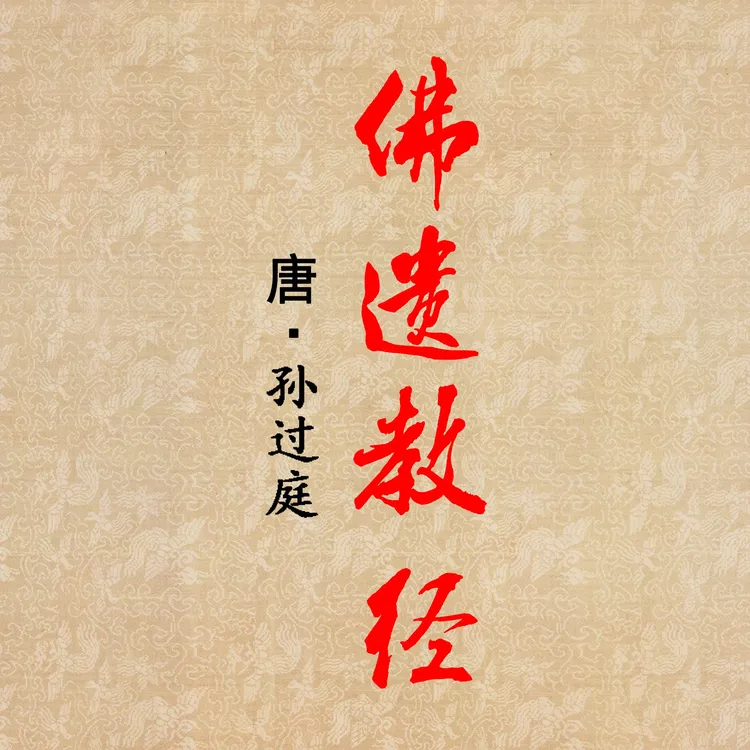 佛遗教经
唐·孙过庭